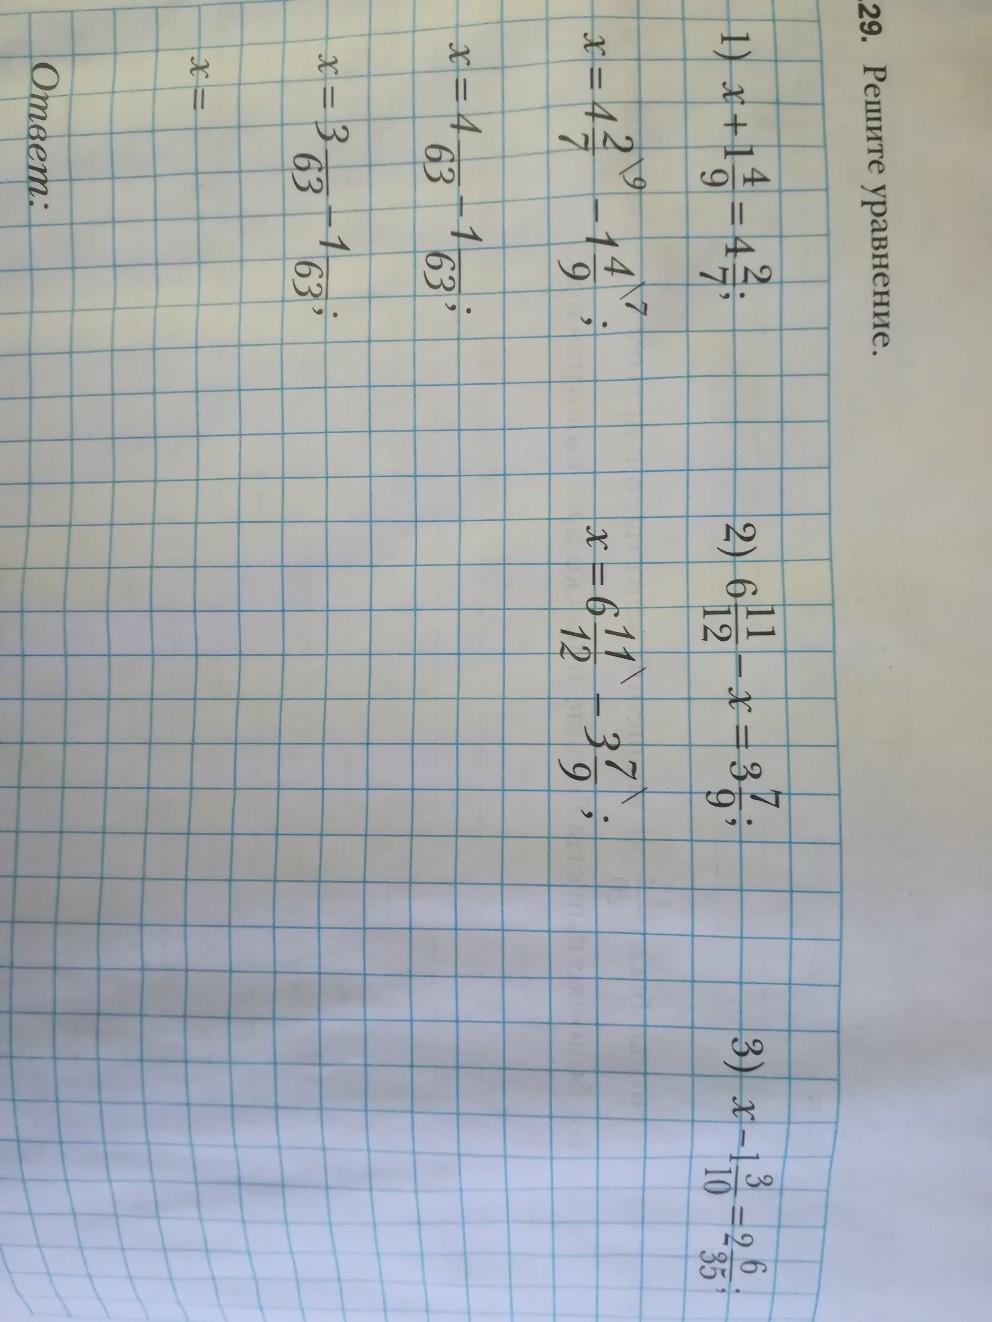 .29. Решите уравнение.
1) x + 1 4/9 = 4 2/7;
x = 4 2/7 \9 − 1 4/9 \7 ;
x = 4 /63 − 1 /63;
x = 3 /63 − 1 /63;
x =
Ответ:
2) 6 11/12 − x = 3 7/9;
x = 6 11/12 \ − 3 7/9 \ ;
3) x − 1 3/10 = 2 6/35;